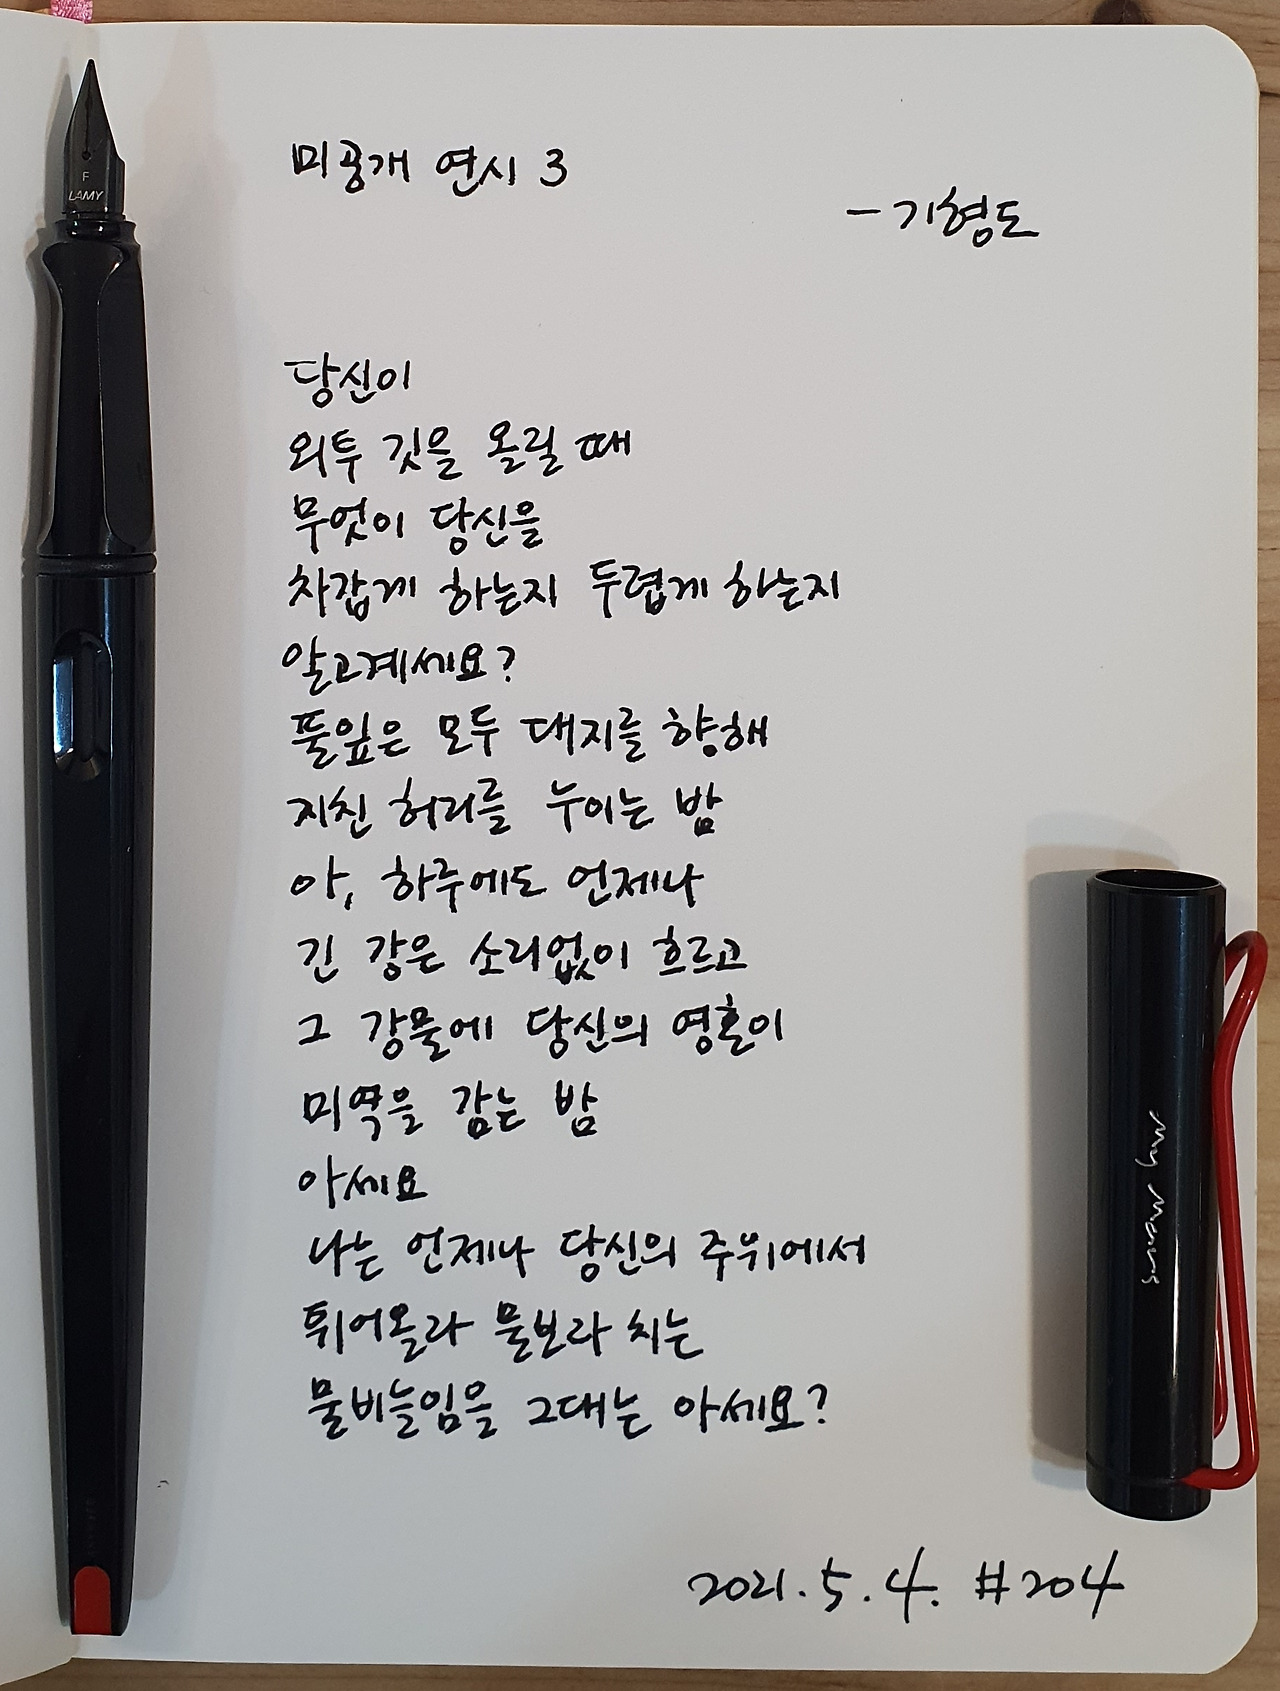 미공개 연시 3
- 기형도
당신이
외투 깃을 올릴 때
무엇이 당신을
차갑게 하는지 두렵게 하는지
알고계세요?
풀잎은 모두 대지를 향해
지친 허리를 누이는 밤
아, 하루에도 언제나
긴 강은 소리없이 흐르고
그 강물에 당신의 영혼이
미역을 감는 밤
아세요
나는 언제나 당신의 주위에서
튀어올라 물보라 치는
물비늘임을 그대는 아세요?
2021.5.4. #204
F
LAMY